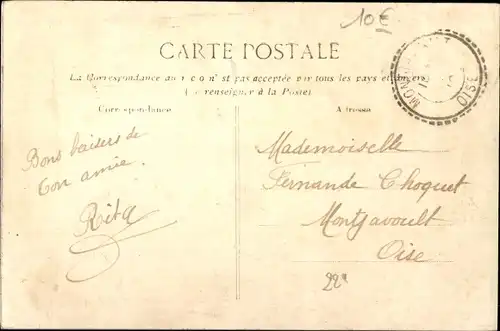 10€
CARTE POSTALE
La Correspondance au r c o n' st pas acceptée par tous les pays étrangers
(Se renseigner à la Poste)
Correspondance
Adresse
OISE
Bons baisers de
ton amie.
Rita
Mademoiselle
Fernande Choquet
Montjavoult
Oise